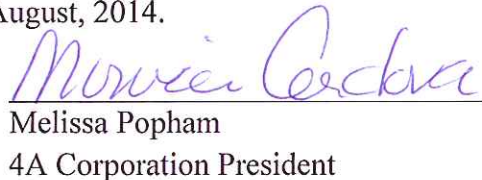 August, 2014.
Cordova
Melissa Popham
4A Corporation President